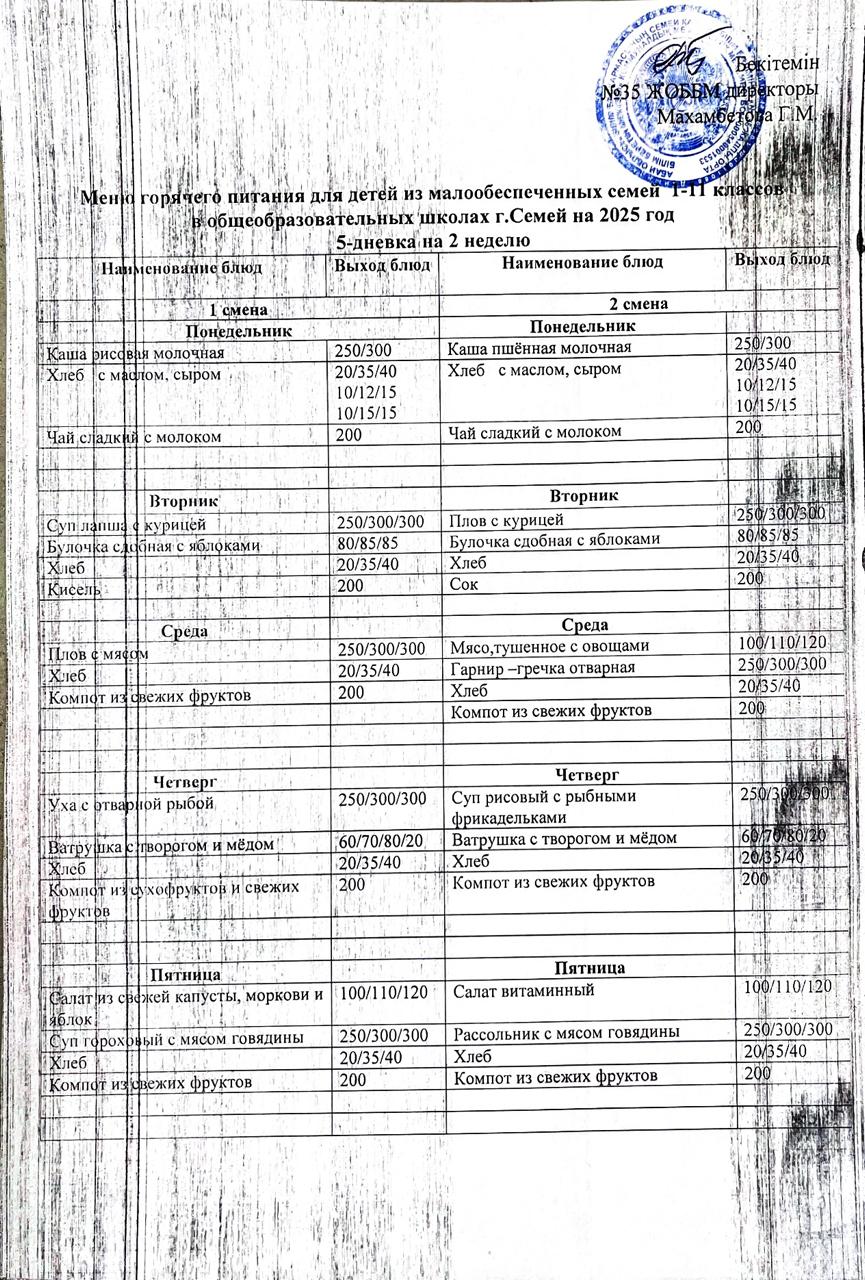 Бекітемін
№35 ЖОББМ директоры
Махамбетова Г.М.
Меню горячего питания для детей из малообеспеченных семей 1-11 классов
в общеобразовательных школах г.Семей на 2025 год
5-дневка на 2 неделю
Наименование блюд Выход блюд Наименование блюд Выход блюд
1 смена 2 смена
Понедельник Понедельник
Каша рисовая молочная 250/300 Каша пшённая молочная 250/300
Хлеб с маслом, сыром 20/35/40 Хлеб с маслом, сыром 20/35/40
10/12/15 10/12/15
10/15/15 10/15/15
Чай сладкий с молоком 200 Чай сладкий с молоком 200
Вторник Вторник
Суп лапша с курицей 250/300/300 Плов с курицей 250/300/300
Булочка сдобная с яблоками 80/85/85 Булочка сдобная с яблоками 80/85/85
Хлеб 20/35/40 Хлеб 20/35/40
Кисель 200 Сок 200
Среда Среда
Плов с мясом 250/300/300 Мясо,тушенное с овощами 100/110/120
Хлеб 20/35/40 Гарнир –гречка отварная 250/300/300
Компот из свежих фруктов 200 Хлеб 20/35/40
Компот из свежих фруктов 200
Четверг Четверг
Уха с отварной рыбой 250/300/300 Суп рисовый с рыбными 250/300/300
фрикадельками
Ватрушка с творогом и мёдом 60/70/80/20 Ватрушка с творогом и мёдом 60/70/80/20
Хлеб 20/35/40 Хлеб 20/35/40
Компот из сухофруктов и свежих 200 Компот из свежих фруктов 200
фруктов
Пятница Пятница
Салат из свежей капусты, моркови и 100/110/120 Салат витаминный 100/110/120
яблок
Суп гороховый с мясом говядины 250/300/300 Рассольник с мясом говядины 250/300/300
Хлеб 20/35/40 Хлеб 20/35/40
Компот из свежих фруктов 200 Компот из свежих фруктов 200